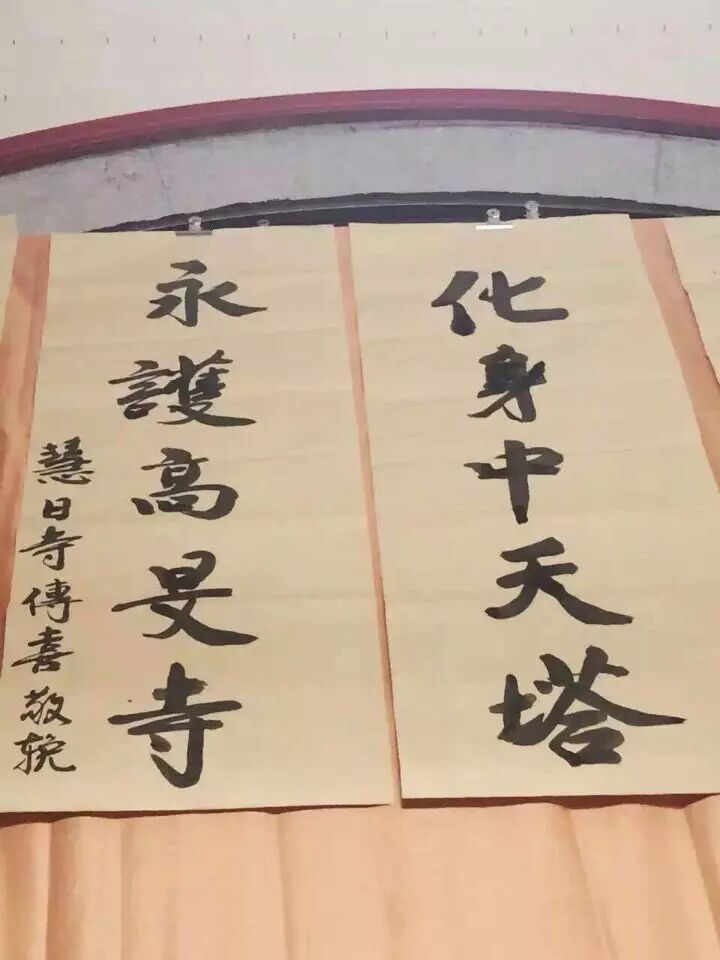 化身中天塔
永護高旻寺
慧日寺傳喜敬輓